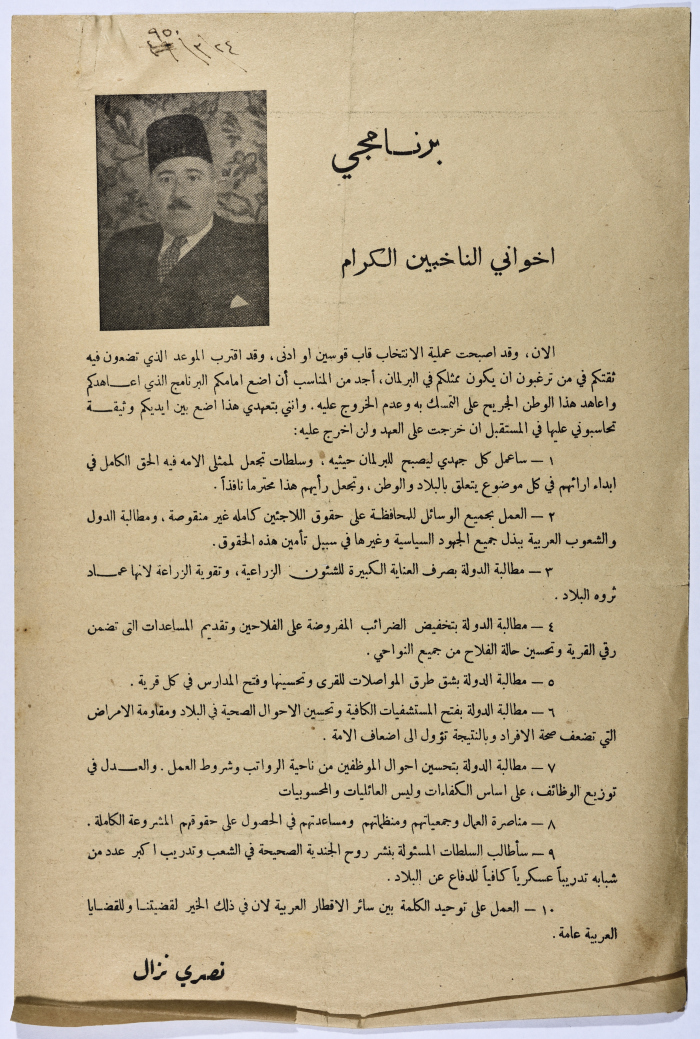 ٩٥٠
٢٤/٣/
برنامجي
اخواني الناخبين الكرام
الان، وقد اصبحت عملية الانتخاب قاب قوسين او ادنى، وقد اقترب الموعد الذي تضعون فيه
ثقتكم في من ترغبون ان يكون ممثلكم في البرلمان، أجد من المناسب أن اضع امامكم البرنامج الذي اعاهدكم
واعاهد هذا الوطن الجريح على التمسك به وعدم الخروج عليه. وانني بتعهدي هذا اضع بين ايديكم وثيقة
تحاسبوني عليها في المستقبل ان خرجت على العهد ولن اخرج عليه:
١ – ساعمل كل جهدي ليصبح للبرلمان حيثيه، وسلطات تجعل لممثلي الامه فيه الحق الكامل في
ابداء ارائهم في كل موضوع يتعلق بالبلاد والوطن، وتجعل رأيهم هذا محترما نافذاً.
٢ – العمل بجميع الوسائل للمحافظة على حقوق اللاجئين كامله غير منقوصة، ومطالبة الدول
والشعوب العربية ببذل جميع الجهود السياسية وغيرها في سبيل تأمين هذه الحقوق.
٣ – مطالبة الدولة بصرف العناية الكبيرة للشئون الزراعية، وتقوية الزراعة لانها عماد
ثروه البلاد.
٤ – مطالبة الدولة بتخفيض الضرائب المفروضة على الفلاحين وتقديم المساعدات التى تضمن
رقي القرية وتحسين حالة الفلاح من جميع النواحي.
٥ – مطالبة الدولة بشق طرق المواصلات للقرى وتحسينها وفتح المدارس في كل قرية.
٦ – مطالبة الدولة بفتح المستشفيات الكافية وتحسين الاحوال الصحية في البلاد ومقاومة الامراض
التي تضعف صحة الافراد وبالنتيجة تؤول الى اضعاف الامة.
٧ – مطالبة الدولة بتحسين احوال الموظفين من ناحية الرواتب وشروط العمل. والعدل في
توزيع الوظائف، على اساس الكفاءات وليس العائليات والمحسوبيات
٨ – مناصرة العمال وجمعياتهم ومنظماتهم ومساعدتهم في الحصول على حقوقهم المشروعة الكاملة.
٩ – سأطالب السلطات المسئولة بنشر روح الجندية الصحيحة في الشعب وتدريب اكبر عدد من
شبابه تدريباً عسكرياً كافياً للدفاع عن البلاد.
١٠ – العمل على توحيد الكلمة بين سائر الاقطار العربية لان في ذلك الخير لقضيتنا وللقضايا
العربية عامة.
نصري نزال